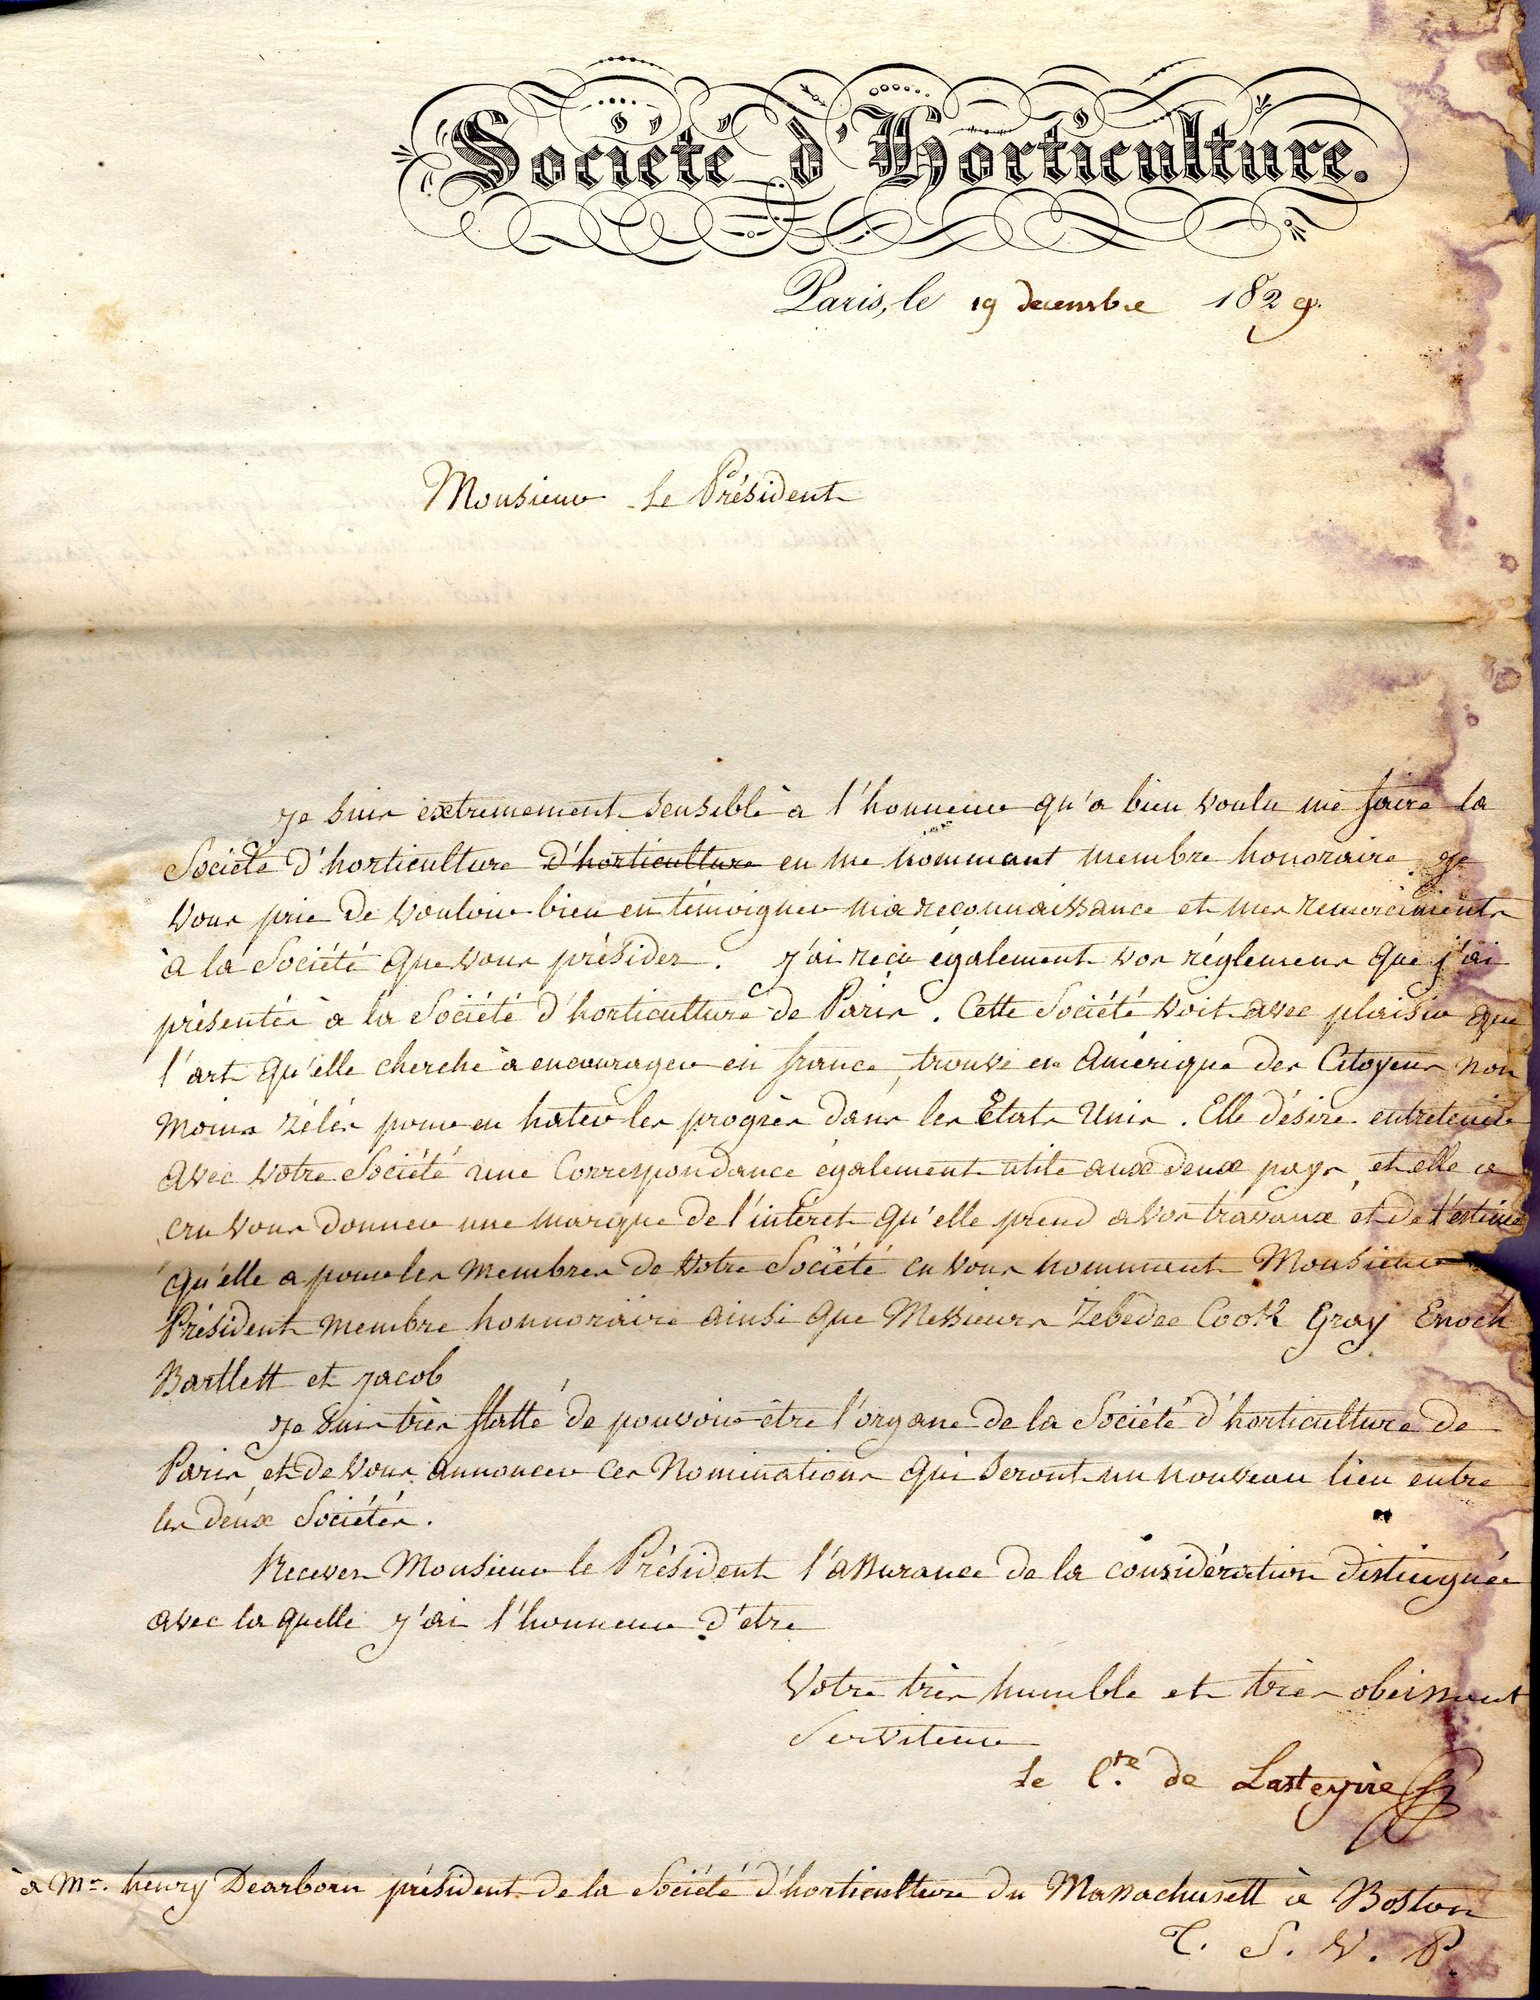 Société d'Horticulture.
Paris, le 19 decembre 1829.
Monsieur le Président
Je suis extremement sensible à l'honneur qu'a bien voulu me faire la
Société d'horticulture d'horticulture en me nommant membre honoraire je
vous prie de vouloir bien en témoigner ma reconnaissance et mes remerciments
à la Société que vous présidez. J'ai reçu également vos réglemens que j'ai
présentés à la Société d'horticulture de Paris. Cette Société voit avec plaisir que
l'art qu'elle cherche à encourager en france, trouve en Amérique des Citoyens non
moins zélés pour en hater les progrès dans les Etats Unis. Elle désire entretenir
avec votre Société une Correspondance également utile aux deux pays, et elle a
cru vous donner une marque de l'intéret qu'elle prend a vos travaux et de l'estime
qu'elle a pour les membres de votre Société en vous nommant Monsieur
Président membre honnoraire ainsi que Messieurs Zebedee Cook Gray Enoch
Bartlett et Jacob
Je suis très flatté de pouvoir être l'organe de la Société d'horticulture de
Paris, et de vous annoncer ces Nominations qui seront un nouveau lien entre
les deux Sociétés.
Recevez Monsieur le Président l'assurance de la considération distinguée
avec la quelle j'ai l'honneur d'etre
Votre très humble et très obeissant
Serviteur
le Cte. de Lasteyrie
à Mr. henry Dearborn président de la Société d'horticulture du Massachusett à Boston
T. S. V. P.